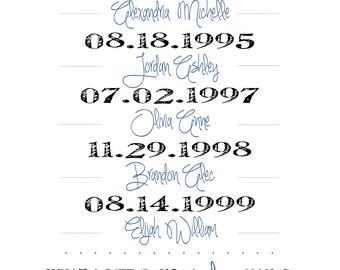 Alexandria Michelle
08.18.1995
Jordan Ashley
07.02.1997
Olivia Anne
11.29.1998
Brandon Alec
08.14.1999
Elijah William